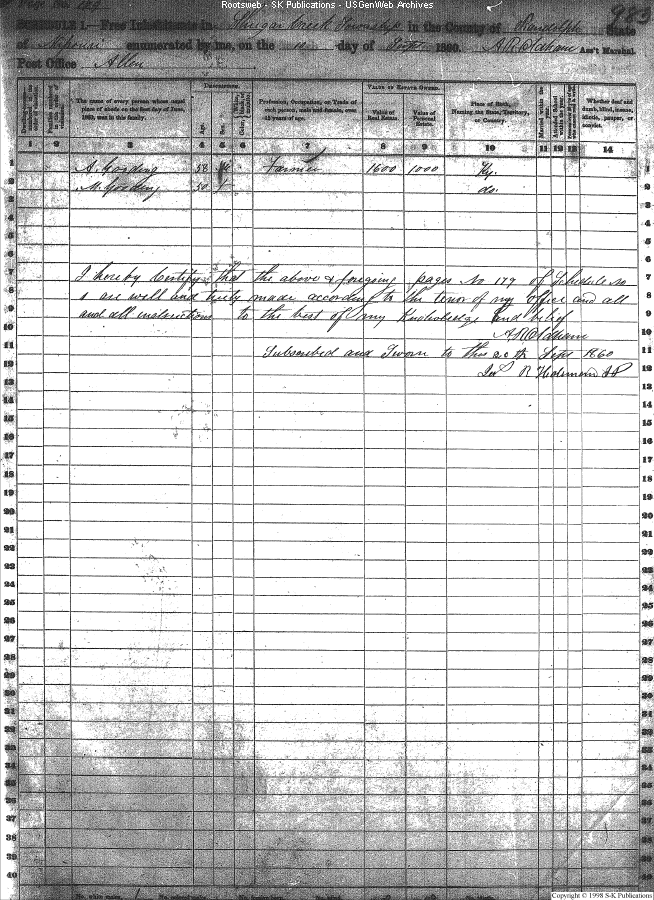 Rootsweb - SK Publications - USGenWeb Archives
Page No. 179
983
SCHEDULE 1.—Free Inhabitants in Shugar Creek Township in the County of Randolph State
of Missouri enumerated by me, on the day of Sept 1860. A. R. Oldham Ass't Marshal.
Post Office Allen
DESCRIPTION.
VALUE OF ESTATE OWNED.
The name of every person whose usual place of abode on the first day of June, 1860, was in this family.
Age.
Sex.
Profession, Occupation, or Trade of each person, male and female, over 15 years of age.
Value of Real Estate.
Value of Personal Estate.
Place of Birth, Naming the State, Territory, or Country.
Married within the year.
Whether deaf and dumb, blind, insane, idiotic, pauper, or convict.
1 2 3 4 5 6 7 8 9 10 11 12 13 14
1 A. Gooding 58 m Farmer 1600 1000 Ky. 1
2 M. Gooding 50 f do. 2
3 3
4 4
5 5
6 6
7 I hereby Certify that the above & foregoing pages No 179 of Schedule No 7
8 1 are well and truly made according to the tenor of my office and all 8
9 and all instructions to the best of my Knowledge and belief 9
10 A R Oldham 10
11 Subscribed and Sworn to this 20th Sept 1860 11
12 R 12
13 13
14 14
15 15
16 16
17 17
18 18
19 19
20 20
21 21
22 22
23 23
24 24
25 25
26 26
27 27
28 28
29 29
30 30
31 31
32 32
33 33
34 34
35 35
36 36
37 37
38 38
39 39
40 40
No. white males, 1
Copyright © 1998 S-K Publications